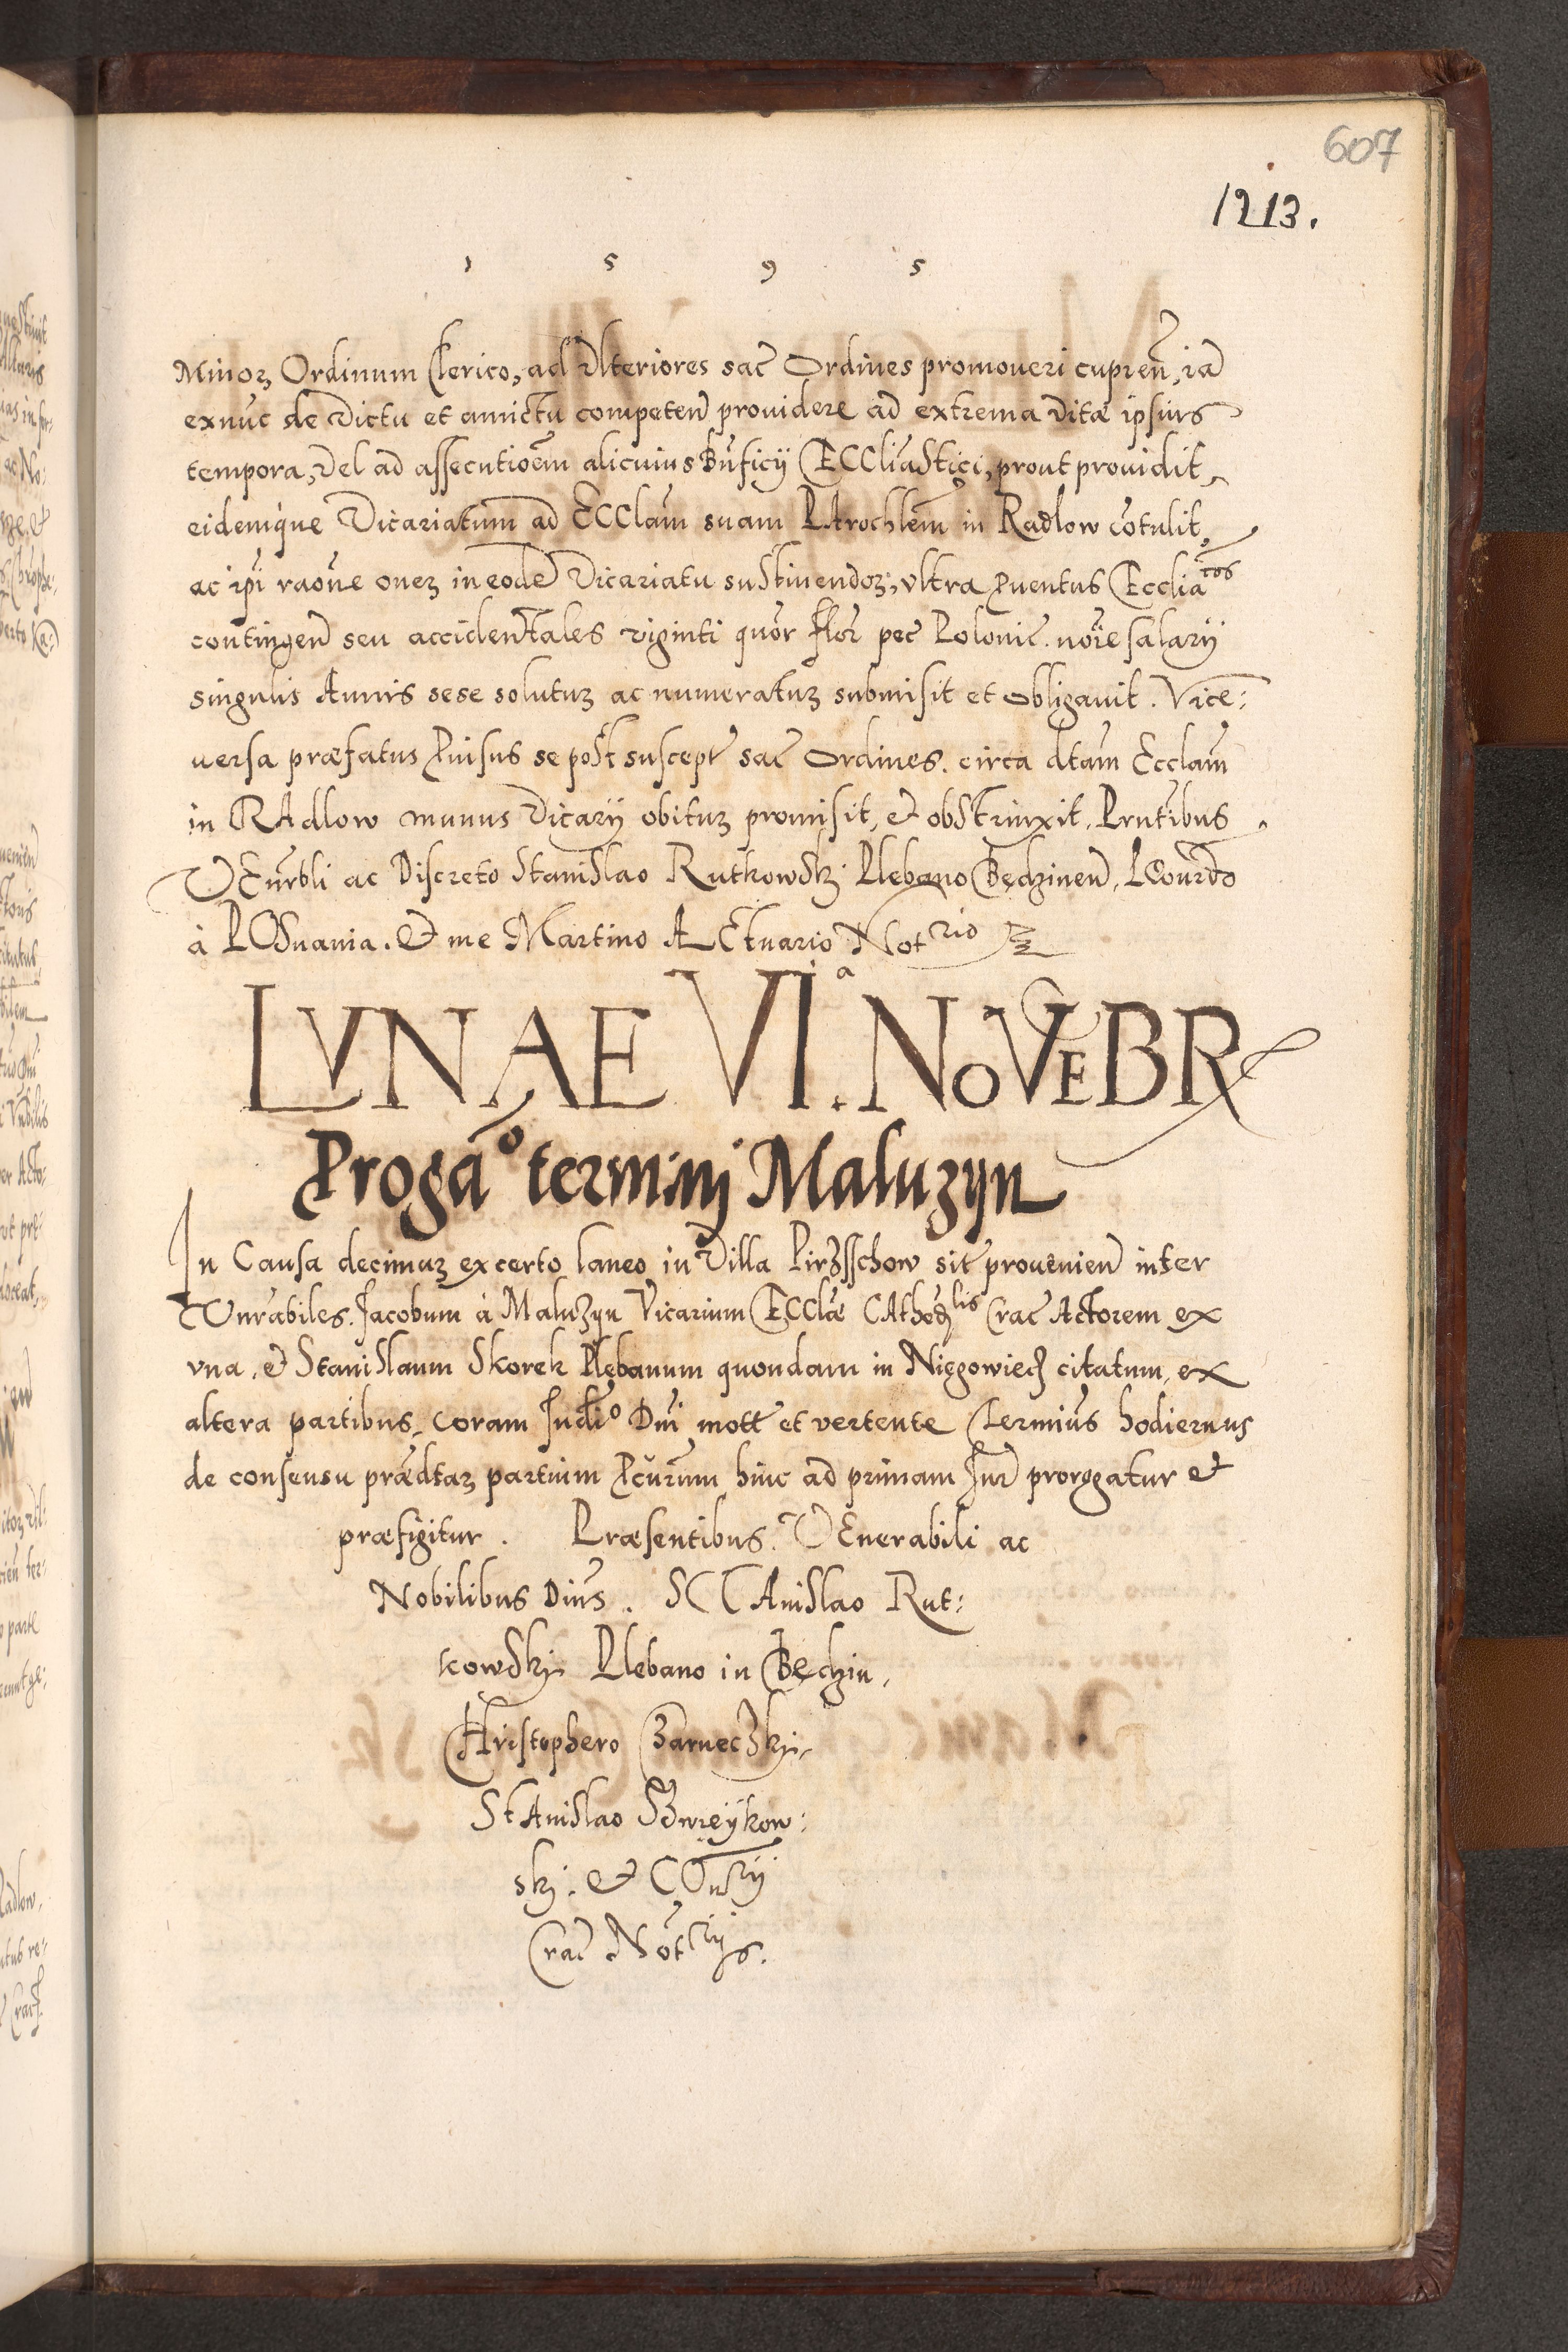 607
1213.
1 5 9 5
Minorꝫ Ordinum Clerico, ad Vlteriores sac̄ Ordines promoueri cupien̄, iā
exnūc de Victu et amictu competen̄ prouidere ad extrema Vitæ ipsiūs
tempora, Vel ad assecutioēm alicuius Būficij ECCliāstici, prout prouidit,
eidemq́ue Vicariatum ad ECClām suam PArochlēm in Radlow cōtulit,
ac ip̄i raōne oneꝝ in eodē Vicariatu sustinendoꝝ, vltra ꝓuentus Eccliācos
contingen̄ seu accidentales viginti quōr flōr pec̄ Polonic̄. nōīe salarij
singulis Annis sese solutuꝝ ac numeratuꝝ submisit et obligauit. Vice:
uersa præfatus Ꝓuisus se post suscept̄ sac̄ Ordines. circa dtām Ecclām
in RAdlow munus Vicarij obituꝝ promisit, & obstrinxit, Prntībus
VEnr̄bli ac Discreto Stanislao Rutkowskj Plebano Bęchinen̄, LEonr̄do
à POsnania. & me Martino ACtuario Notrio
LVNAE VIa. NoVEBR
Progāo terminj Maluzyn
In Causa decimaꝝ ex certo laneo in Villa Pirzsschow sit̄ prouenien̄ inter
Vnr̄abiles. Jacobum à Maluzyn Vicarium ECClæ CAthedlis Crac̄ Actorem ex
vna. & Stanislaum Skorek Plebanum quondam in Niegowiec̄ citatum, ex
altera partibus, coram Judio Dni mott̄ et vertente Termiūs hodiernus
de consensu prædtaꝝ partium Pcūrum hinc ad primam Jur̄ prorogatur &
præfigitur. Præsentibus. VEnerabili ac
Nobilibus Dnīs. STAnislao Rut:
kowskj Plebano in Bęchin,
CHristophero Czarneczkj,
StAnislao Gwreykow:
skj. & COnsrij
Crac̄ Notrijs.